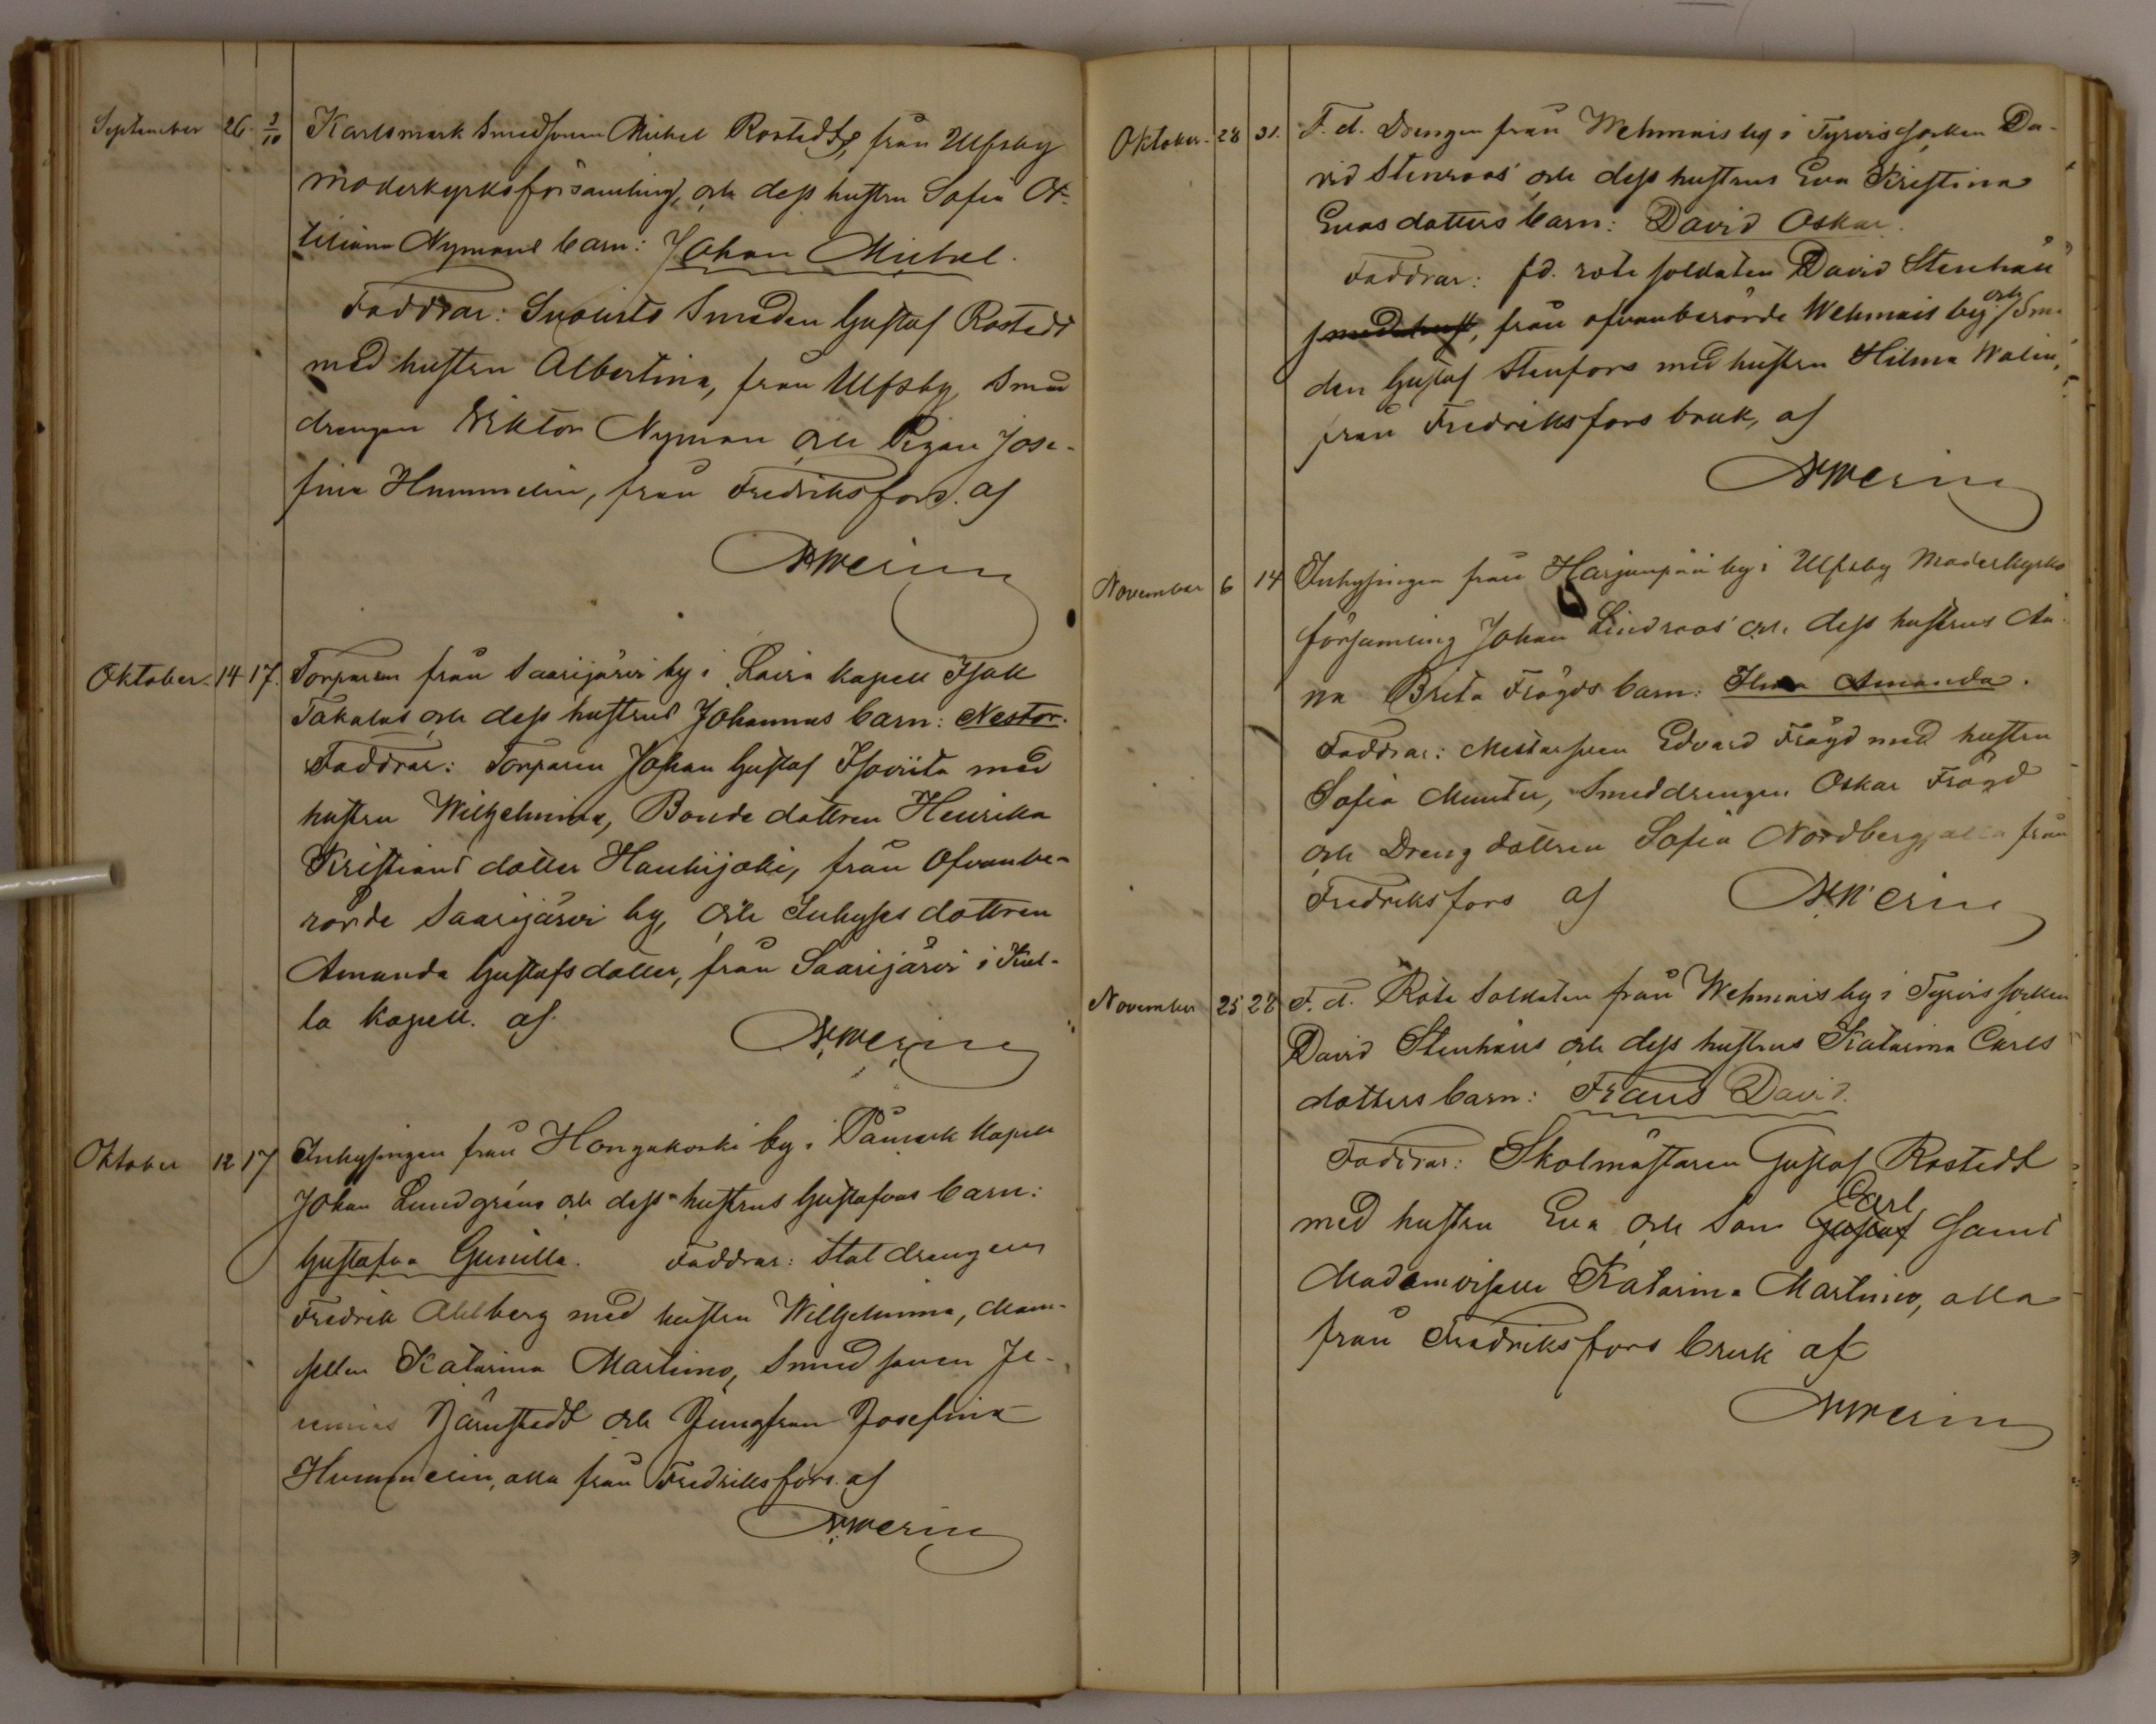 September 26. 3/10 Karlsmark Smedsonen Michel Rostedts, från Ulfsby
moderkyrkoförsamling, och dess hustru Sofia Ot-
tiliana Nymans barn: Johan Michel.
Faddrar: Smeden Gustaf Rostedt
med hustru Albertina, från Ulfsby, Smed
drengen Viktor Nyman och Pigan Jose-
fina Hummelin, från Fredriksfors. af
Oktober. 14 17. Torparen från Saarijärvi by i Lavia kapell Isak
Takalas och dess hustrus Johannas barn: Nestor.
Faddrar: Torparen Johan Gustaf Isoviita med
hustru Wilhelmina, Bonde dottren Henrika
Kristians dotter Haukijoki, från Ofvanbe-
rörde Saarijärvi by, och Inhyses dottren
Amanda Gustafs dotter, från Saarijärvi i Kul-
la Kapell. af
Oktober 12 17 Inhysingen från Hongakoski by i Påmark Kapell
Johan Lundgréns och dess hustrus Gustafvas barn:
Gustafva Gunilla. Faddrar: Statdrengen
Fredrik Ahlberg med hustru Wilhelmina, Mam-
sellen Katarina Martimo, Smedsonen Je-
remias Järnstedt och Jungfrun Josefina
Hummelin, alla från Fredriksfors. af
Oktober. 28 31. F. d. Drengen från Wehmais by i Tyrvis socken Da-
vid Stenroos' och dess hustrus Eva Kristina
Evas dotters barn: David Oskar.
Faddrar: fd. rote soldaten David Stenhäll
från ofvanberörde Wehmais by och Sme-
den Gustaf Stenfors med hustru Hilma Walin,
från Fredriksfors bruk, af
November 6 14 Inhysingen från Harjunpää by i Ulfsby Moderkyrko
församling Johan Lindroos' och dess hustrus An-
na Brita Frögds barn: Amanda.
Faddrar: Edvard Frögd med hustru
Sofia Munter, Smeddrengen Oskar Frögd
och Dreng dottren Sofia Nordberg, alla från
Fredriksfors af
November 25 28 F. d. Rote Soldaten från Wehmais by i Tyrvis socken
David Stenhäls och dess hustrus Katarina Carls
dotters barn: Frans David.
Faddrar: Skolmästaren Gustaf Rostedt
med hustru Eva och Son Gustaf Carl samt
Madamoiselle Katarina Martimo, alla
från Fredriksfors bruk af